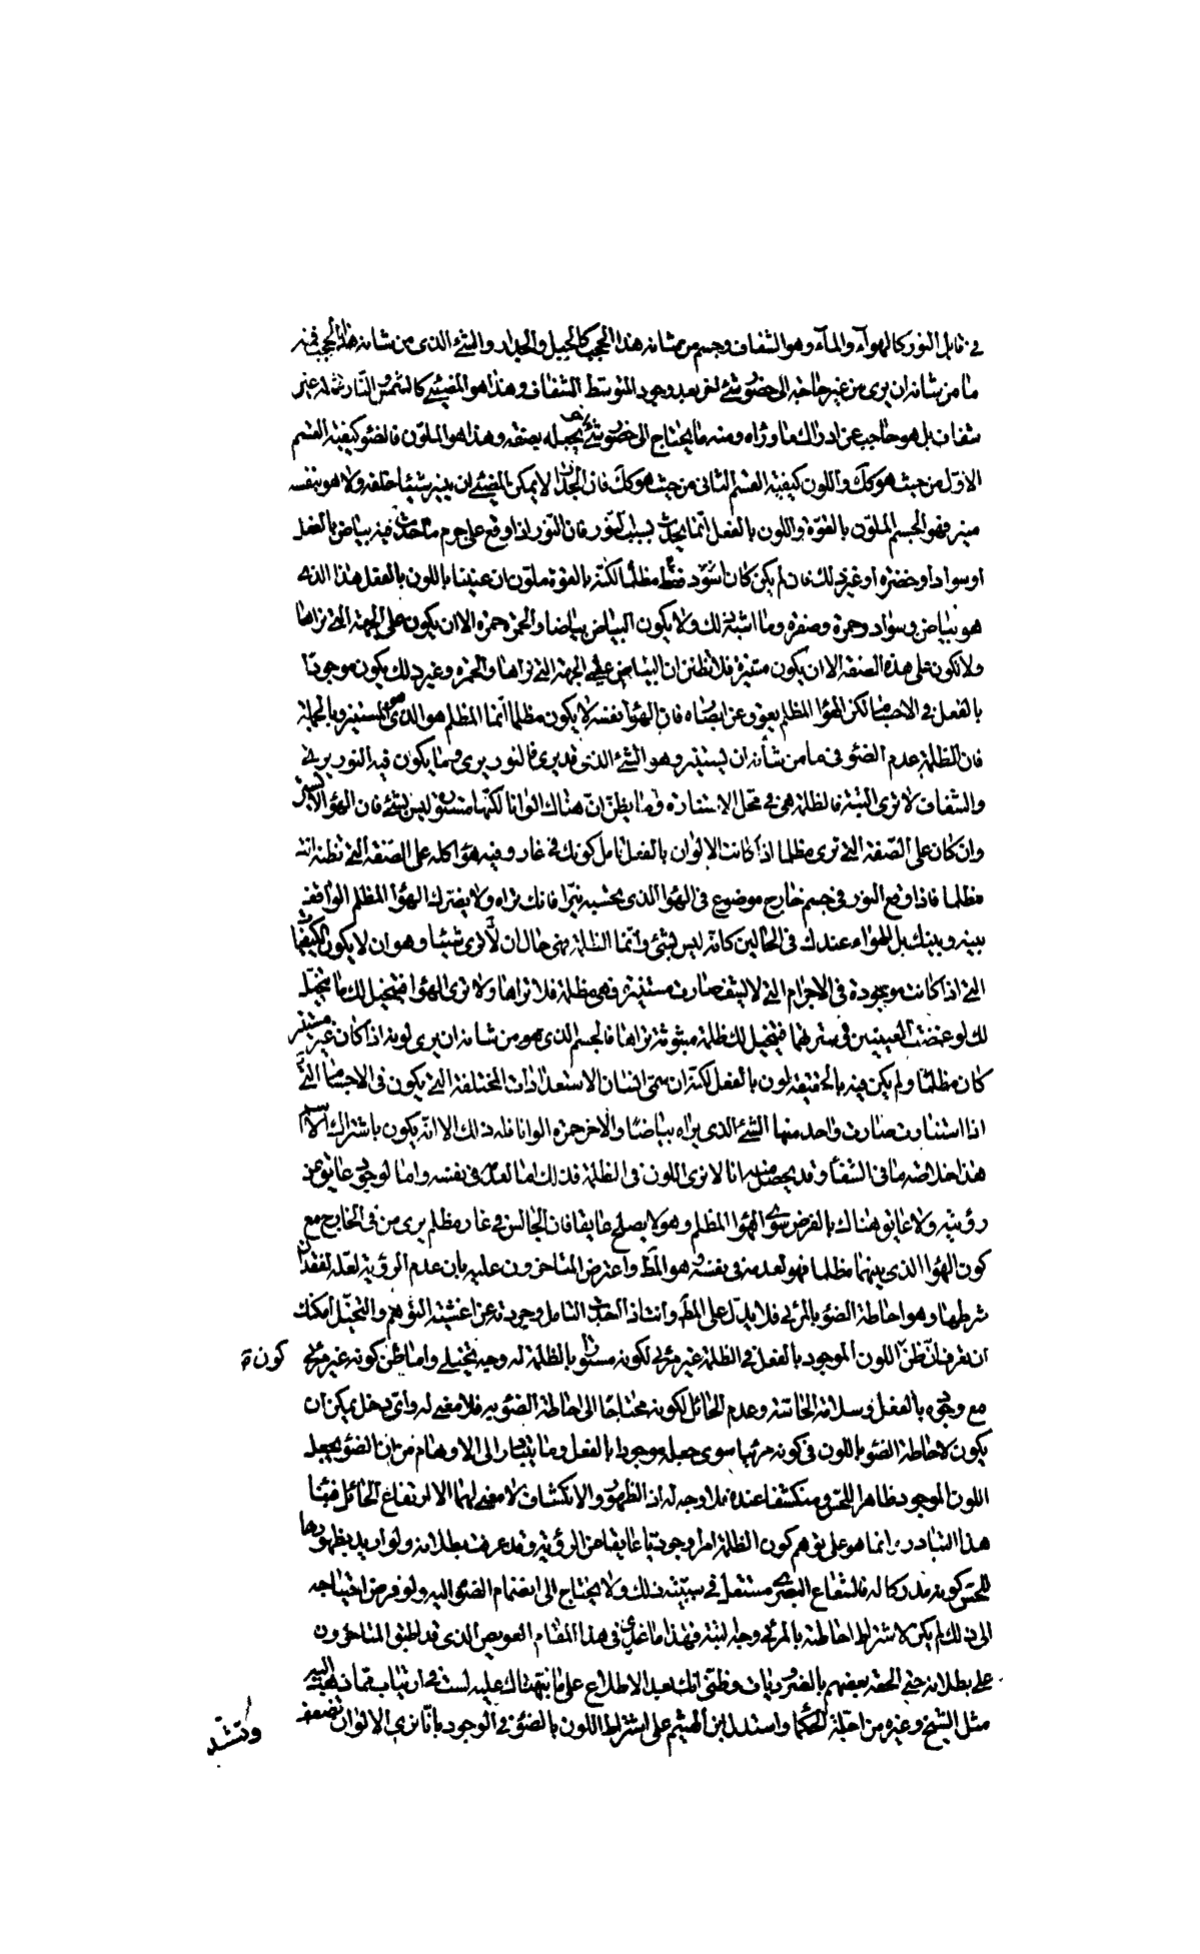 في قابل النور كالهوآء والمآء وهو الشفاف وجسم من شانه هذا الحجب كالجبل والجدار والشئ الذى من شانه هذا الحجب فمنه
ما من شانه ان يرى من غير حاجة الى حضور شئ اخر بعد وجود المتوسط الشفاف وهذا هو المضيئ كالشمس والنار فانه غير
شفاف بل هو حاجب عن ادراك ما وراه ومنه ما يحتاج الى حضور شئ يجعله بصفة وهذا هو الملون فالضوء كيفية القسم
الاول من حيث هو كك واللون كيفية القسم الثانى من حيث هو كك فان الجدار لا يمكن المضيئ ان ينير شيئا خلفه ولا هو بنفسه
منير فهو الجسم الملون بالقوة واللون بالفعل انما يحدث بسبب النور فان النور اذا وقع على جرم ما حدث فيه بياض بالفعل
او سواد او خضرة او غير ذلك فان لم يكن كان اسود فقط مظلما لكنه بالقوة ملون ان عنينا باللون بالفعل هذا الذى
هو بياض وسواد وحمرة وصفرة وما اشبه ذلك ولا يكون البياض بياضا والحمرة حمرة الا ان يكون على الجهة التى نراها
ولا تكون على هذه الصفة الا ان يكون مستنيرة فلا تظنن ان البياض على الجهة التى نراها والحمرة وغير ذلك يكون موجودا
بالفعل فى الاجسام لكن الهواء المظلم يعوق عن ابصاه فان الهواء نفسه لا يكون مظلما انما المظلم هو الذى هو المستنير وبالجملة
فان الظلمة عدم الضوء فى ما من شأنه ان يستنير وهو الشئ الذى قد يرى فالنور يرى وما يكون فيه النور يرى
والشفاف لا يرى البتة فالظلمة هى فى محل الاستنارة وما يظن ان هناك الوانا لكنها مستورة ليس بشئ فان الهواء لا يستر
وان كان على الصفة التى ترى مظلما اذا كانت الالوان بالفعل تأمل كونك فى غار وفيه هواء كله على الصفة التى تظنه انه
مظلما فاذا وقع النور فى جسم خارج موضوع فى الهواء الذى تحسبه نيرا فانك تراه ولا يضرك الهواء المظلم الواقف
بينه وبينك بل الهواء عندك فى الحالين كانه ليس بشئ وانما الظلمة هى حال ان لا ترى شيئا وهو ان لا يكون الكيفيات
التى اذا كانت موجودة فى الاجرام التى لا تشف صارت مستنيرة فهى مظلمة فلا تراها ولا ترى الهواء فيتخيل لك ما يتخيل
لك لو غمضت العينين فى سترهما فيتخيل لك ظلمة مبثوثة تراها فالجسم الذى هو من شانه ان يرى لونه اذا كان غير مستنير
كان مظلما ولم يكن فيه بالحقيقة لون بالفعل لكنه ان سمى انسان الاستعدادات المختلفة التى يكون فى الاجسام التى
اذا استنارت صارت واحد منها الشئ الذى يراه بياضا والاخر حمرة الوانا فله ذلك الا انه يكون باشتراك الاسم
هذا خلاصة ما فى الشفاء وقد يحصل منه انا لا نرى اللون فى الظلمة فذلك اما لعدمه فى نفسه واما لوجود عايق عن
رؤيته ولا عايق هناك بالفرض سوى الهواء المظلم وهو لا يصلح عايقا فان الجالس فى غار مظلم يرى من فى الخارج مع
كون الهواء الذى بينهما مظلما فهو لعدمه فى نفسه وهو المط واعترض المتاخرون عليه بان عدم الرؤية لعله لفقدان
شرطها وهو احاطة الضوء بالمرئى فلا يدل على المط وانت اذا امعنت التامل وجردته عن اغشية التوهم والتخيل امكنك
ان تعرف ان ظن اللون الموجود بالفعل فى الظلمة غير مرئى لكونه مستورا بالظلمة له وجه تخيلى واما ظن كونه غير مرئى
كون ة
مع وجوده بالفعل وسلامة الحاسة وعدم الحائل لكونه محتاجا الى احاطة الضوء به فلا معنى له واى دخل يمكن ان
يكون لاحاطة الضوء باللون فى كونه مرئيا سوى جعله موجودا بالفعل وما يتبادر الى الاوهام من ان الضوء يجعل
اللون الموجود ظاهرا للحس ومنكشفا عنده فلا وجه له اذ الظهور والانكشاف لا معنى لهما الا ارتفاع الحائل فمنشا
هذا التبادر انما هو على توهم كون الظلمة امرا وجوديا عايقا عن الرؤية وقد عرفت بطلانه ولو اريد بظهورها
للحس كونه مدركا له فالشعاع البصرى مستقل فى سببية ذلك ولا يحتاج الى انضمام الضوء اليه ولو فرض احتياجه
الى ذلك لم يكن لاشتراط احاطته بالمرئى وجه البتة فهذا ما عندى فى هذا المقام العويص الذى قد اطبق المتاخرون
على بطلانه حتى الحقه بعضهم بالضروريات وظنى انك بعد الاطلاع على ما نبهناك عليه لست فى ارتياب فيما ذهب اليه
مثل الشيخ وغيره من اجلة الحكما واستدل ابن الهيثم على اشتراط اللون بالضوء فى الوجود بانا نرى الالوان تضعف
وتشتد